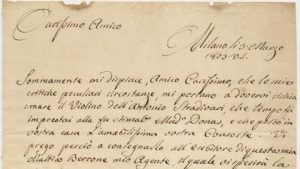 Carissimo Amico
Milano li 3 Marzo
1803 V.S.
Sommamente mi dispiace, Amico Carissimo, che le mie
critiche peculiari circostanze mi portano a dovervi richia=
mare il Violino dell'Antonio Stradivari che tempo fa
imprestai alla fu stimab.e Mad.a Donas, e che portò in
vostra casa l'amabilissima vostra Consorte. Vi
prego perciò a consegnarlo all'Esibitore di questa mia
Berrone mio Agente, il quale vi